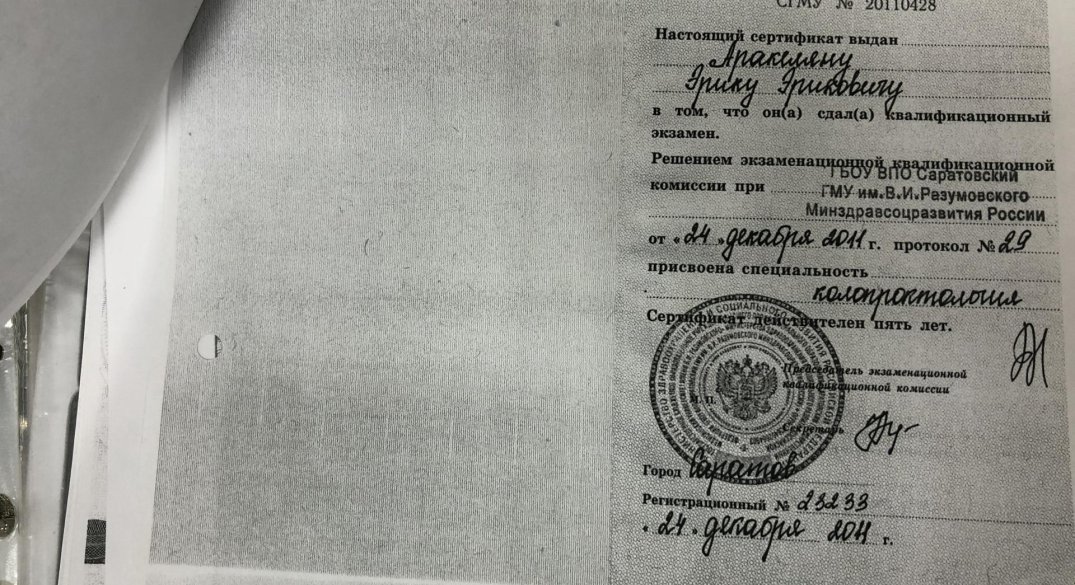 СГМУ № 20110428
Настоящий сертификат выдан
Аракеляну
Эрику Эриковичу
в том, что он(а) сдал(а) квалификационный
экзамен.
Решением экзаменационной квалификационной
комиссии при
ГБОУ ВПО Саратовский
ГМУ им.В.И.Разумовского
Минздравсоцразвития России
от «24» декабря 2011 г. протокол № 29
присвоена специальность
колопроктология
Сертификат действителен пять лет.
Председатель экзаменационной
квалификационной комиссии
М. П.
Секретарь
Город Саратов
Регистрационный № 23233
«24» декабря 2011 г.